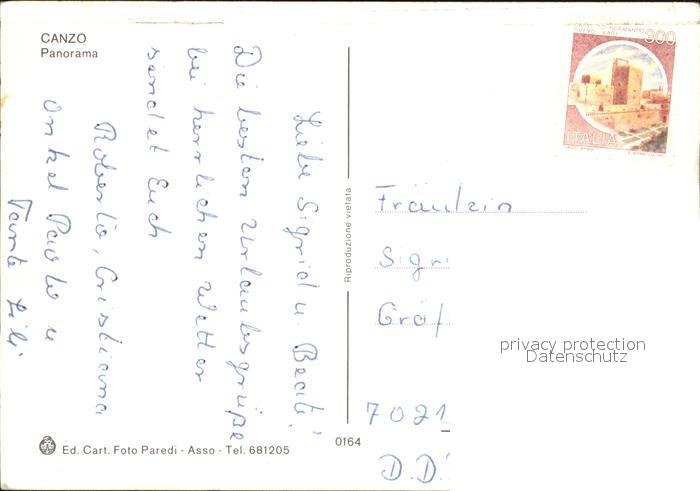 CANZO
Panorama
Liebe Sigrid u. Beate!
Die besten Urlaubsgrüße
bei herrlichen Wetter
sendet Euch
Roberto, Cristiana
Onkel Paolo u
Tante Lili
Riproduzione vietata
CASTELLO NORMANNO
SVEVO BARI
300
ITALIA
Fräulein
Sigri
Gräf
privacy protection
Datenschutz
7021
D.D.
Ed. Cart. Foto Paredi - Asso - Tel. 681205
0164